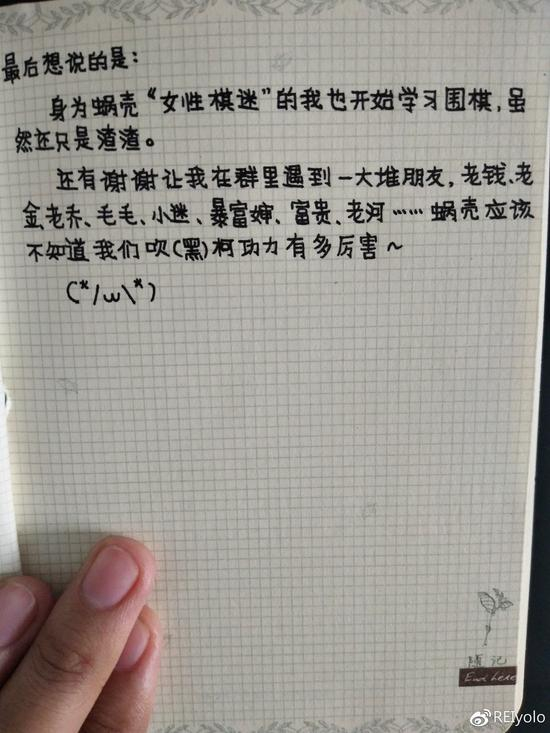 最后想说的是：
身为蜗壳“女性棋迷”的我也开始学习围棋，虽
然还只是渣渣。
还有谢谢让我在群里遇到一大堆朋友，老钱、老
金、老乔、毛毛、小迷、暴富婶、富贵、老河……蜗壳应该
不知道我们吹(黑)柯功力有多厉害～
(*/ω\*)
随记
End here
REIyolo